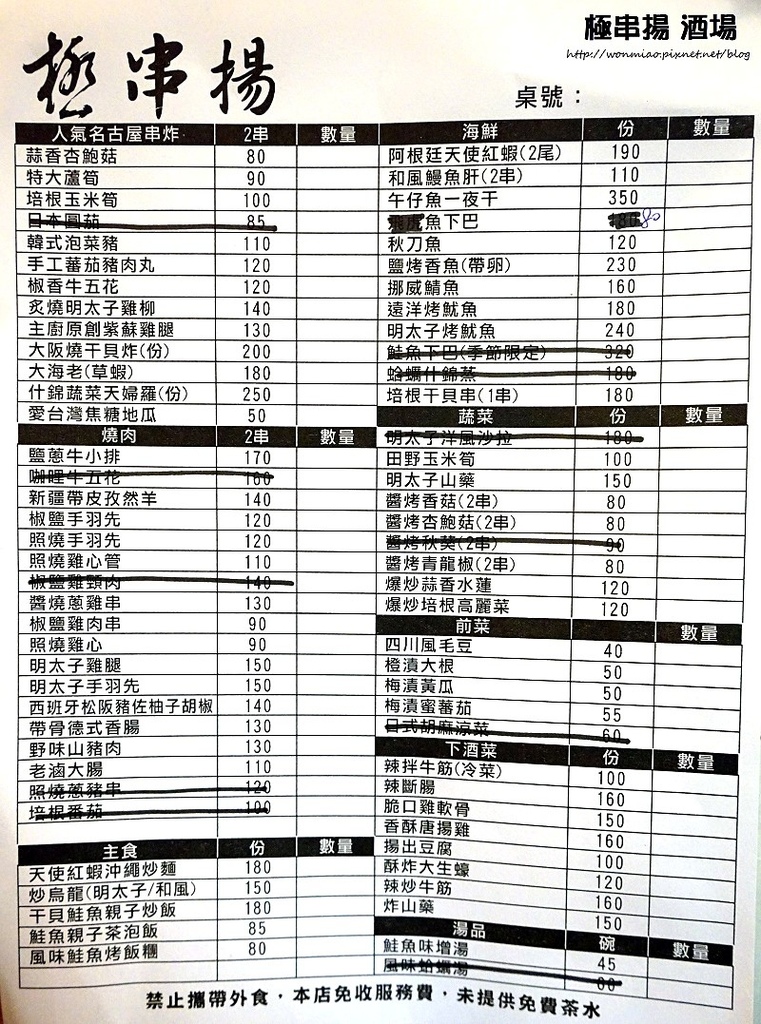 極串揚 酒場
http://wonmiao.pixnet.net/blog
極串揚
桌號：
人氣名古屋串炸 2串 數量
蒜香杏鮑菇 80
特大蘆筍 90
培根玉米筍 100
日本圓茄 85
韓式泡菜豬 110
手工蕃茄豬肉丸 120
椒香牛五花 120
炙燒明太子雞柳 140
主廚原創紫蘇雞腿 130
大阪燒干貝炸(份) 200
大海老(草蝦) 180
什錦蔬菜天婦羅(份) 250
愛台灣焦糖地瓜 50
燒肉 2串 數量
鹽蔥牛小排 170
咖哩牛五花 160
新疆帶皮孜然羊 140
椒鹽手羽先 120
照燒手羽先 120
照燒雞心管 110
椒鹽雞頸肉 140
醬燒蔥雞串 130
椒鹽雞肉串 90
照燒雞心 90
明太子雞腿 150
明太子手羽先 150
西班牙松阪豬佐柚子胡椒 140
帶骨德式香腸 130
野味山豬肉 130
老滷大腸 110
照燒蔥豬串 120
培根番茄 100
主食 份 數量
天使紅蝦沖繩炒麵 180
炒烏龍(明太子/和風) 150
干貝鮭魚親子炒飯 180
鮭魚親子茶泡飯 85
風味鮭魚烤飯糰 80
海鮮 份 數量
阿根廷天使紅蝦(2尾) 190
和風鰻魚肝(2串) 110
午仔魚一夜干 350
飛虎魚下巴 180 80
秋刀魚 120
鹽烤香魚(帶卵) 230
挪威鯖魚 160
遠洋烤魷魚 180
明太子烤魷魚 240
鮭魚下巴(季節限定) 320
蛤蠣什錦蒸 180
培根干貝串(1串) 180
蔬菜 份 數量
明太子洋風沙拉 180
田野玉米筍 100
明太子山藥 150
醬烤香菇(2串) 80
醬烤杏鮑菇(2串) 80
醬烤秋葵(2串) 90
醬烤青龍椒(2串) 80
爆炒蒜香水蓮 120
爆炒培根高麗菜 120
前菜 數量
四川風毛豆 40
橙漬大根 50
梅漬黃瓜 50
梅漬蜜蕃茄 55
日式胡麻涼菜 60
下酒菜 份 數量
辣拌牛筋(冷菜) 100
辣斷腸 160
脆口雞軟骨 150
香酥唐揚雞 160
揚出豆腐 100
酥炸大生蠔 120
辣炒牛筋 160
炸山藥 150
湯品 碗 數量
鮭魚味增湯 45
風味蛤蠣湯 60
禁止攜帶外食，本店免收服務費，未提供免費茶水